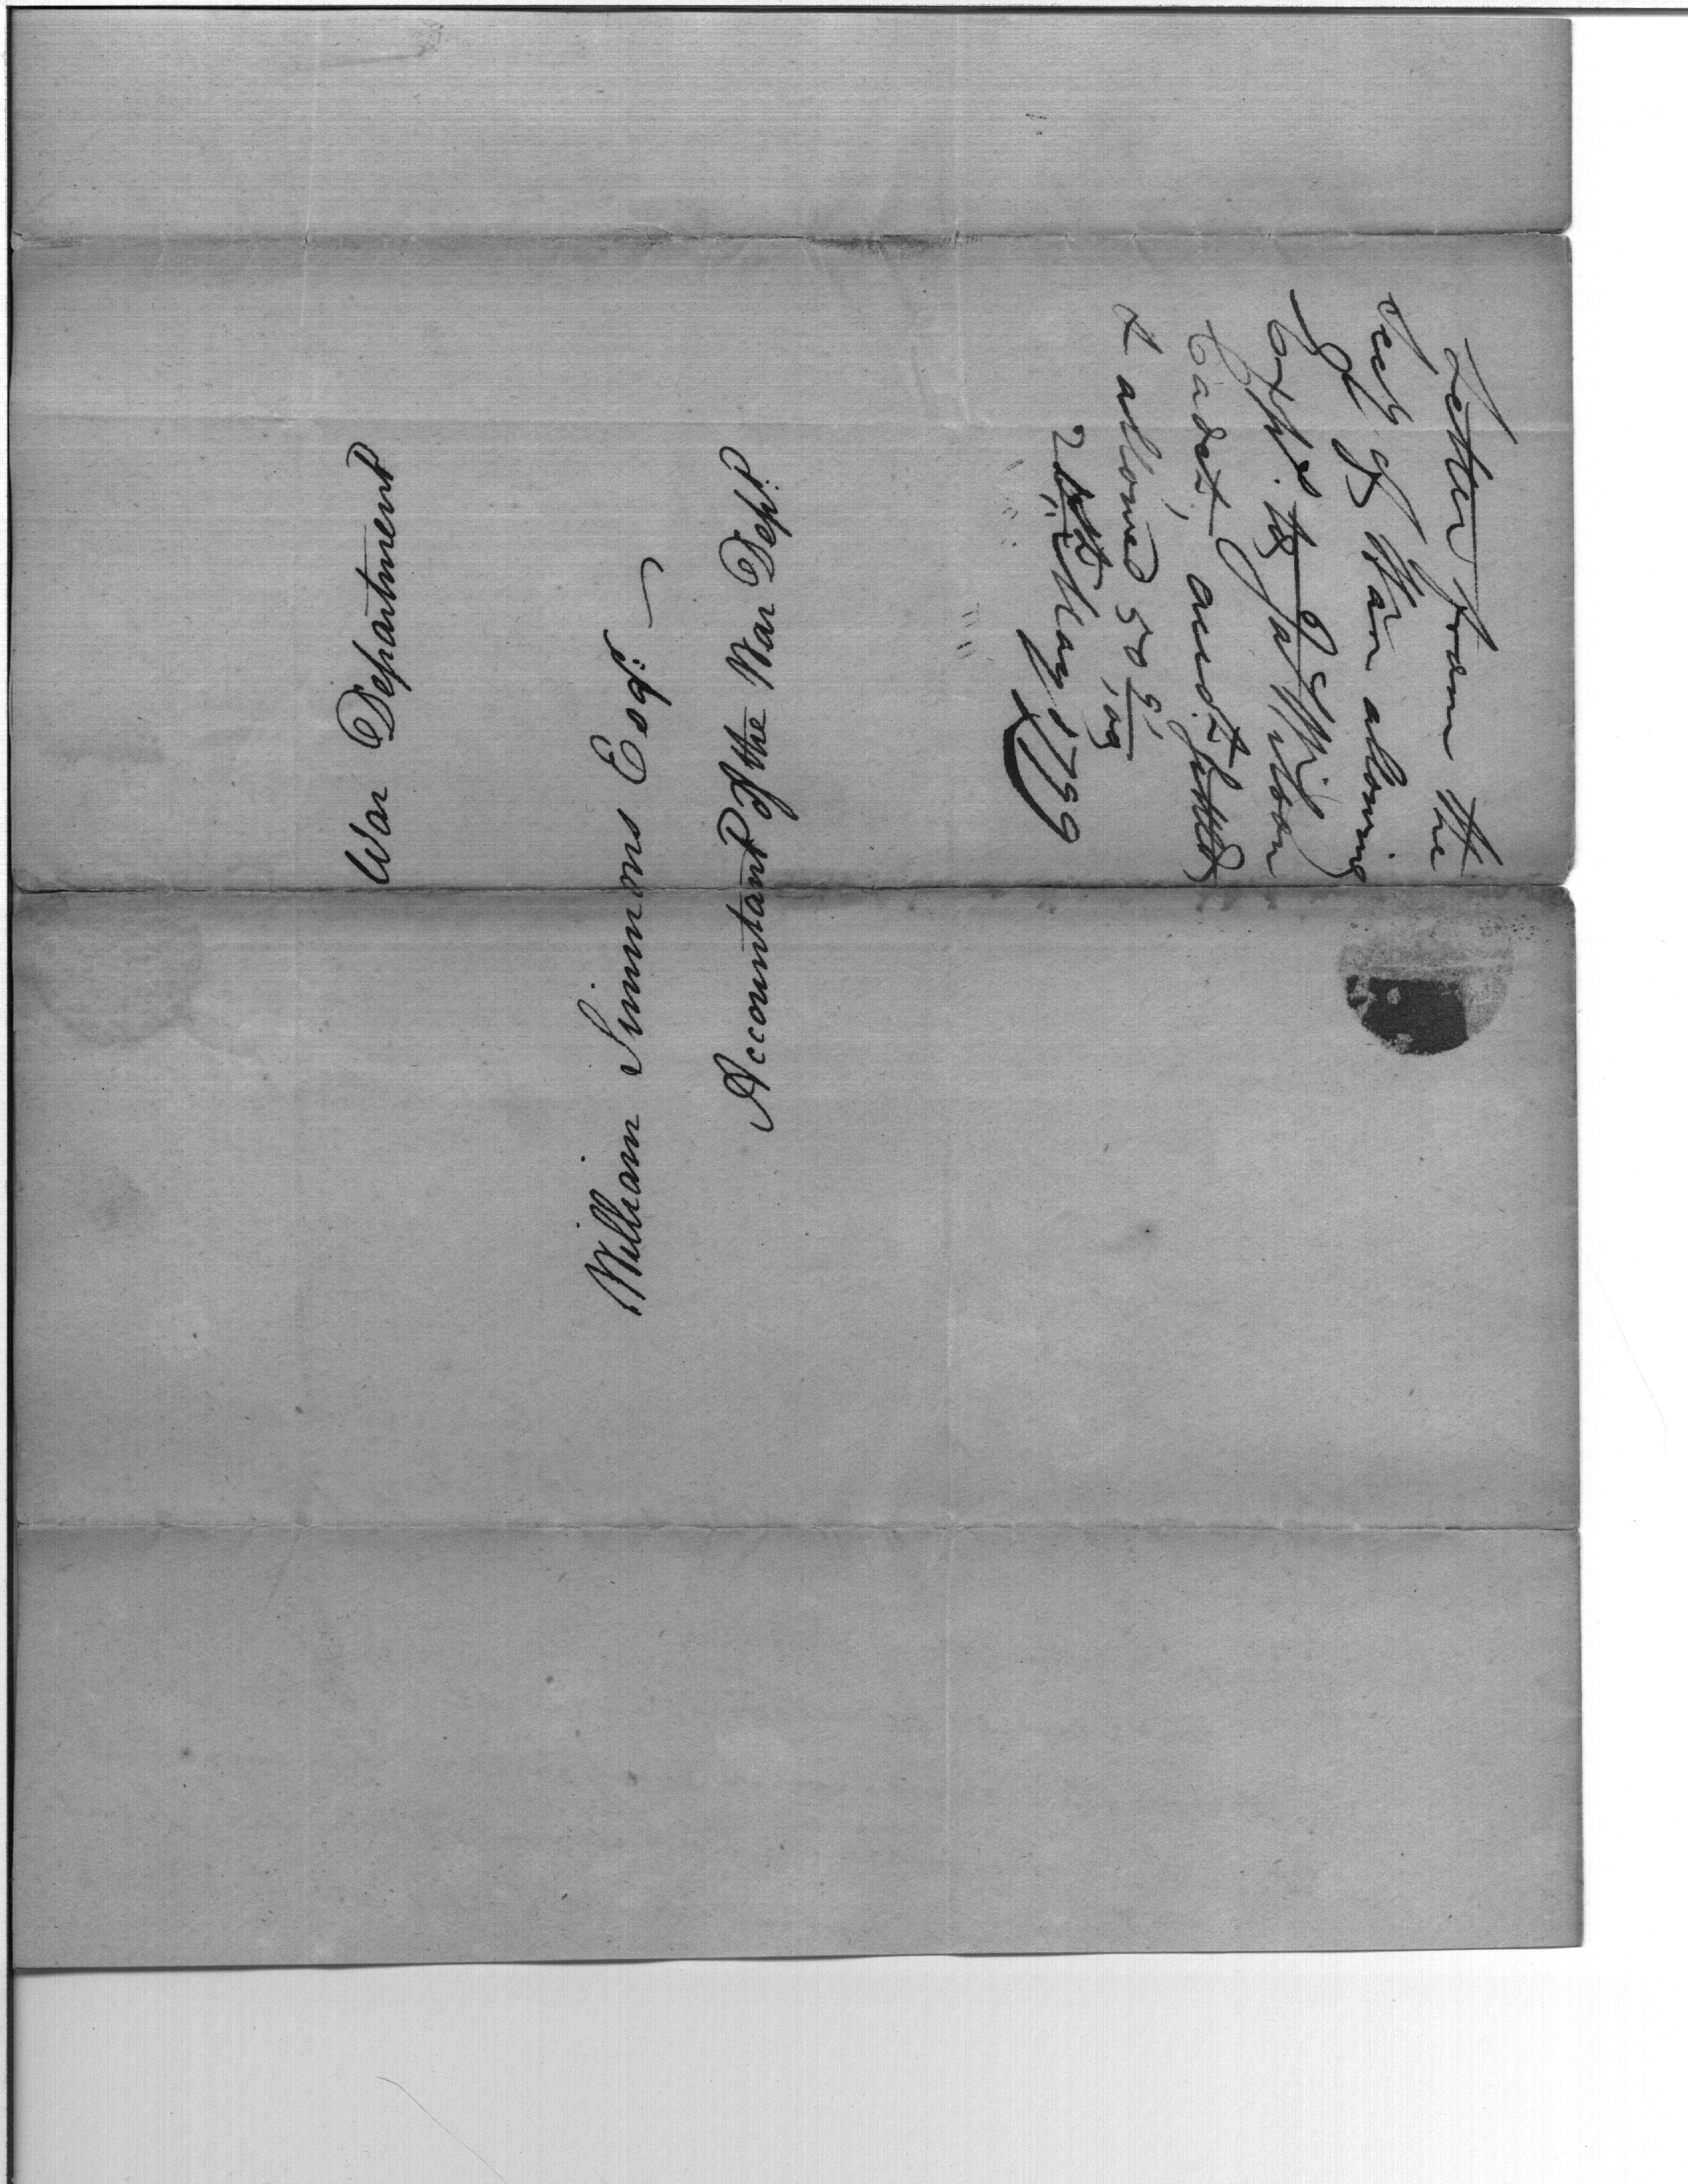 War Department
William Simmons Esqr.
Accountant of the War Dept.
Letter from the
Secy of War allowing
Exps. to Ja Wilson
Cadet, acct. settled
& allowed 50
May 1799